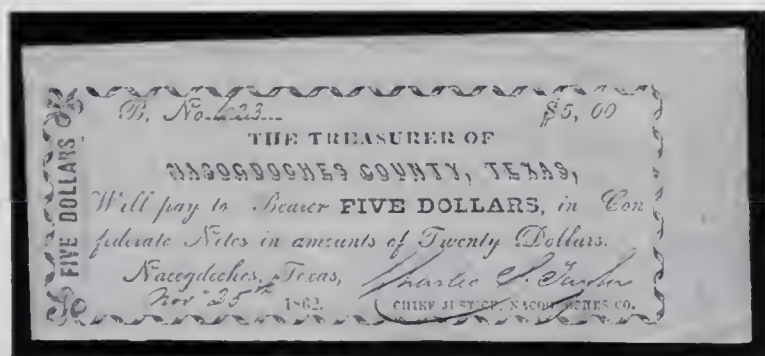 FIVE DOLLARS
B, No. 223 $5, 00
THE TREASURER OF
NACOGDOCHES COUNTY, TEXAS,
Will pay to Bearer FIVE DOLLARS, in Con
federate Notes in amounts of Twenty Dollars.
Nacogdoches, Texas, Charles S. Taylor
Nov 25th 1862. CHIEF JUSTICE, NACOGDOCHES CO.